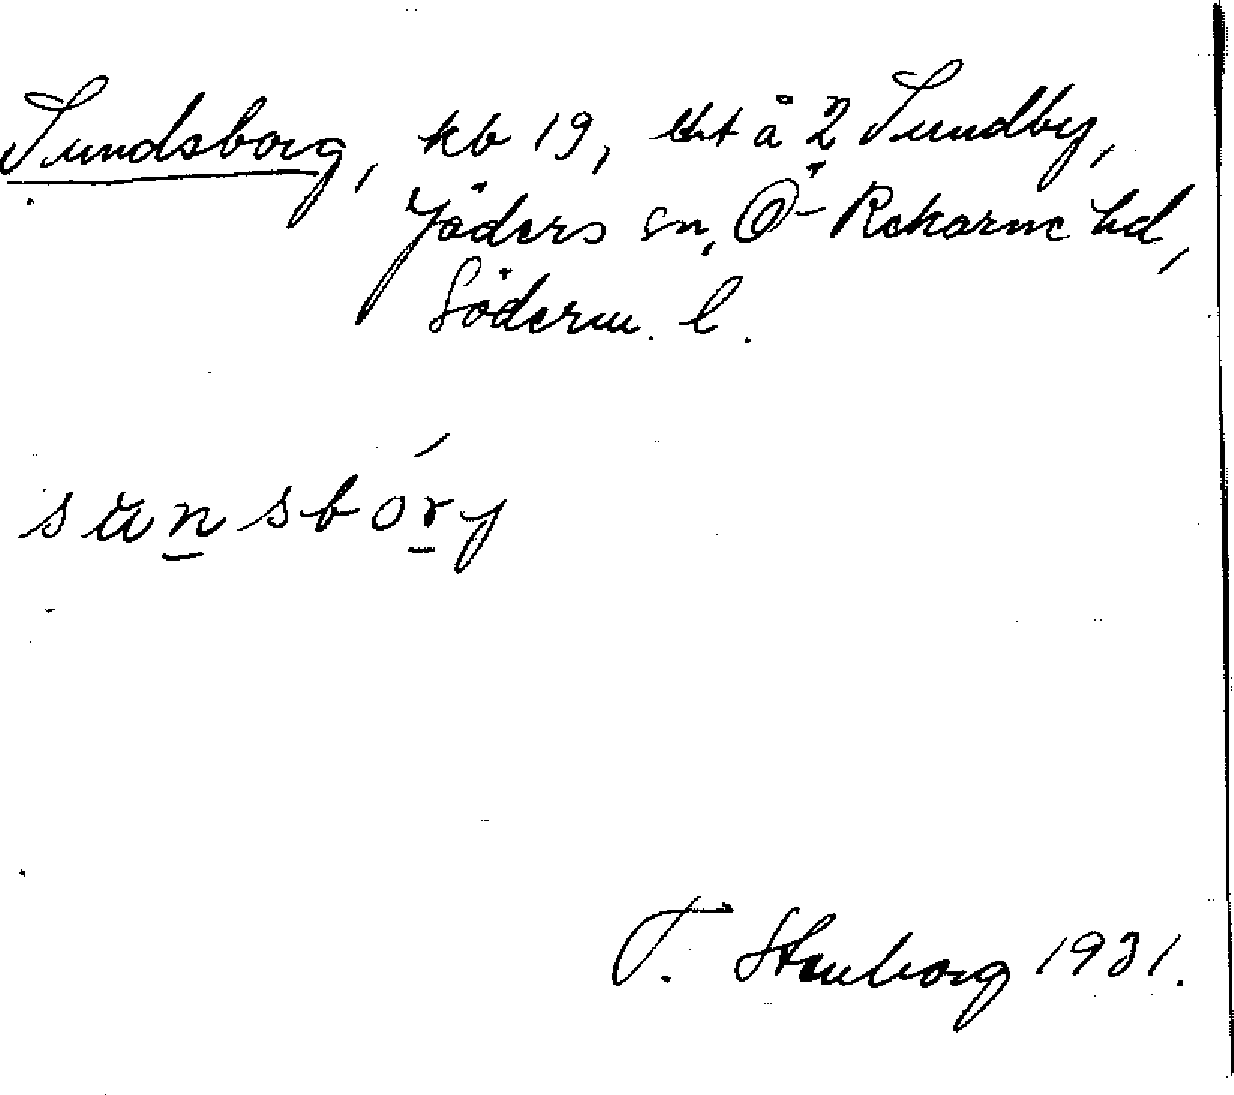 Sundsborg, kb 19, lht å 2 Sundby,
Jäders sn, Ö-Rekarne hd,
Söderm. l.
sunsbóry
T. Stenborg 1931.